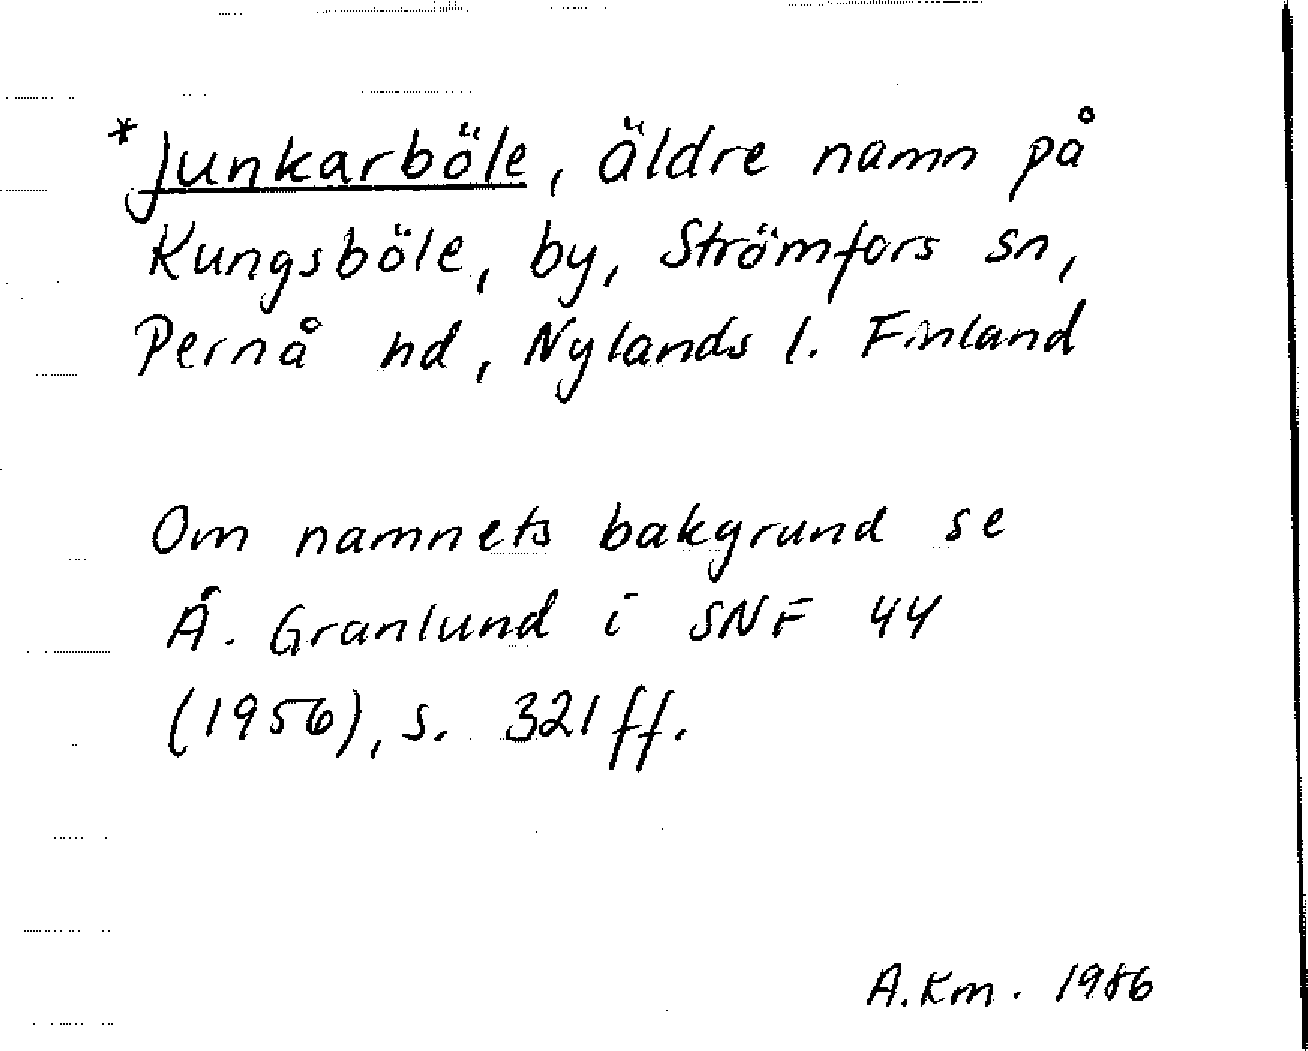 *Junkarböle, äldre namn på
Kungsböle, by, Strömfors sn,
Pernå hd, Nylands l. Finland
Om namnets bakgrund se
Å. Granlund i SNF 44
(1956), s. 321 ff.
A.Km. 1986